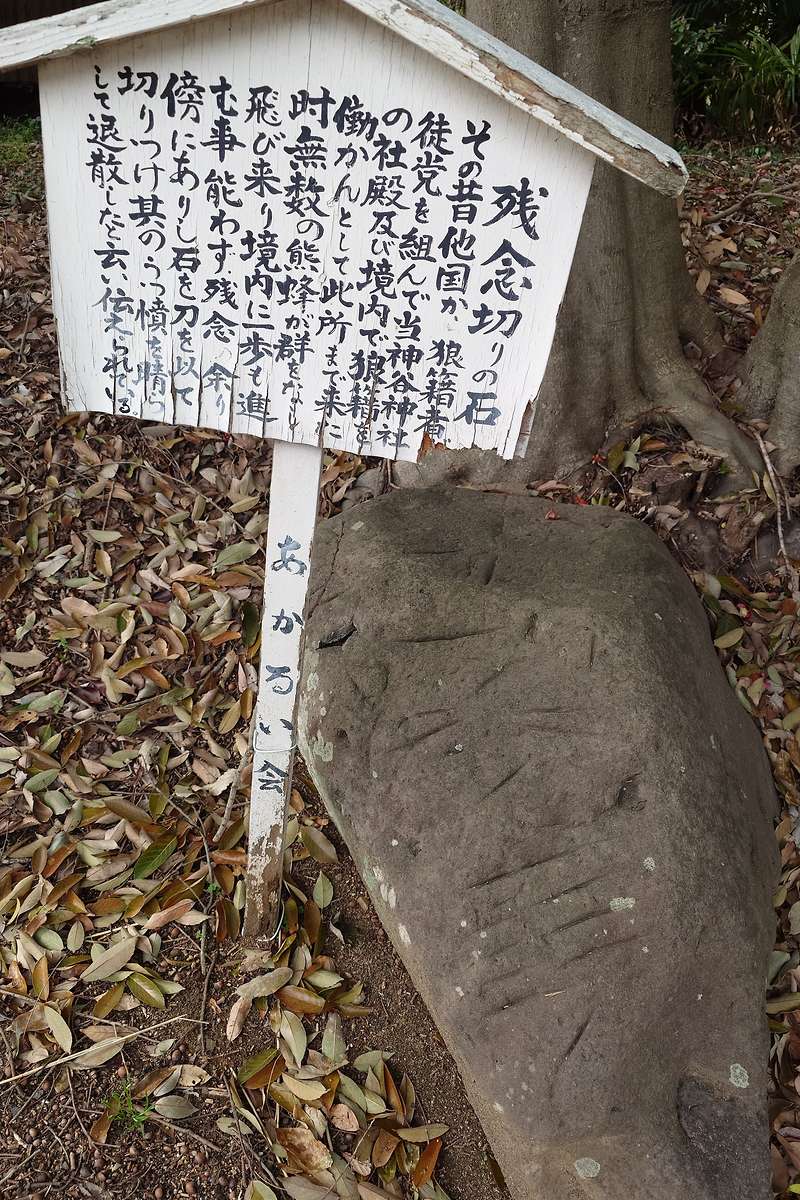 残念切りの石
その昔他国から狼籍者
徒党を組んで当神谷神社
の社殿及び境内で狼籍を
働かんとして此所まで来た
時無数の熊蜂が群をなし
飛び来り境内に一歩も進
む事能わず残念の余り
傍にありし石を刀を以て
切りつけ其のうつ憤を晴ら
して退散したと云い伝えられている
あかるい会